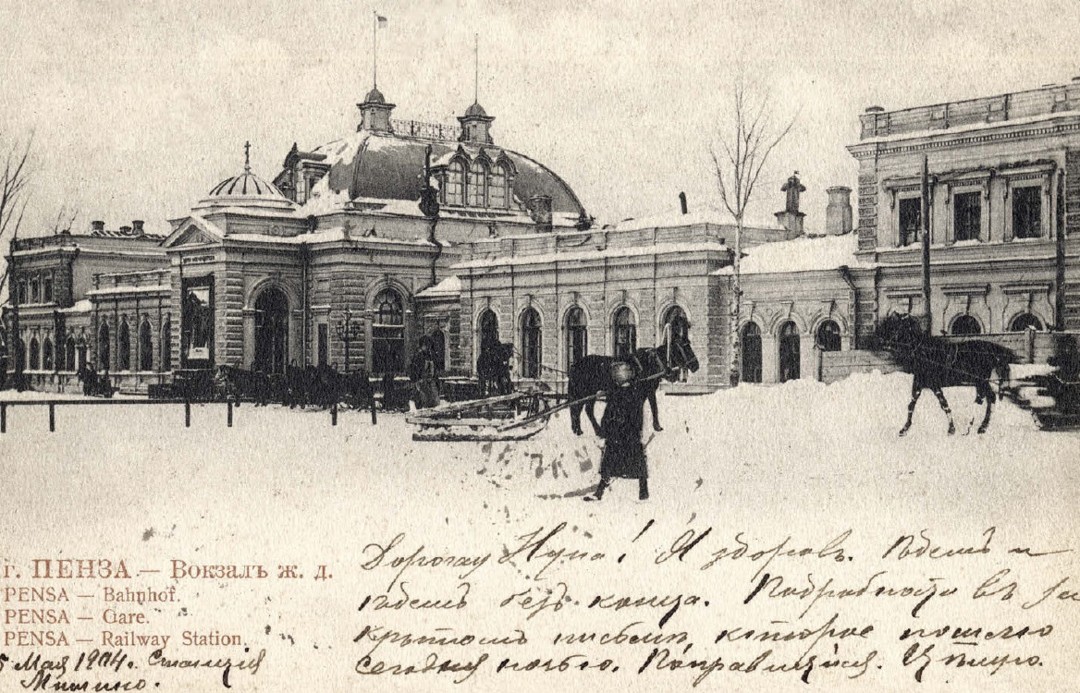 г. ПЕНЗА — Вокзалъ ж. д.
PENSA — Bahnhof.
PENSA — Gare.
PENSA — Railway Station.
5 Мая 1904. Станція
Дорогая Нура! Я здоровъ. Ѣдемъ и
ѣдемъ безъ конца. Подробности въ за
крытомъ письмѣ, которое пошлю
сегодня ночью. Поправляйся. Цѣлую.